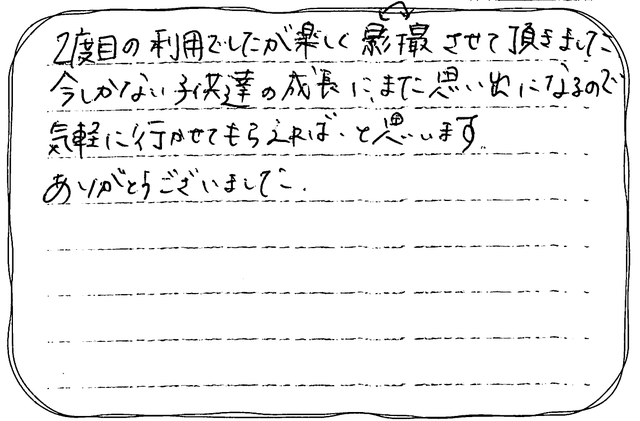 2度目の利用でしたが楽しく影撮させて頂きました
今しかない子供達の成長に、また思い出になるので
気軽に行かせてもらえればと思います
ありがとうございました.